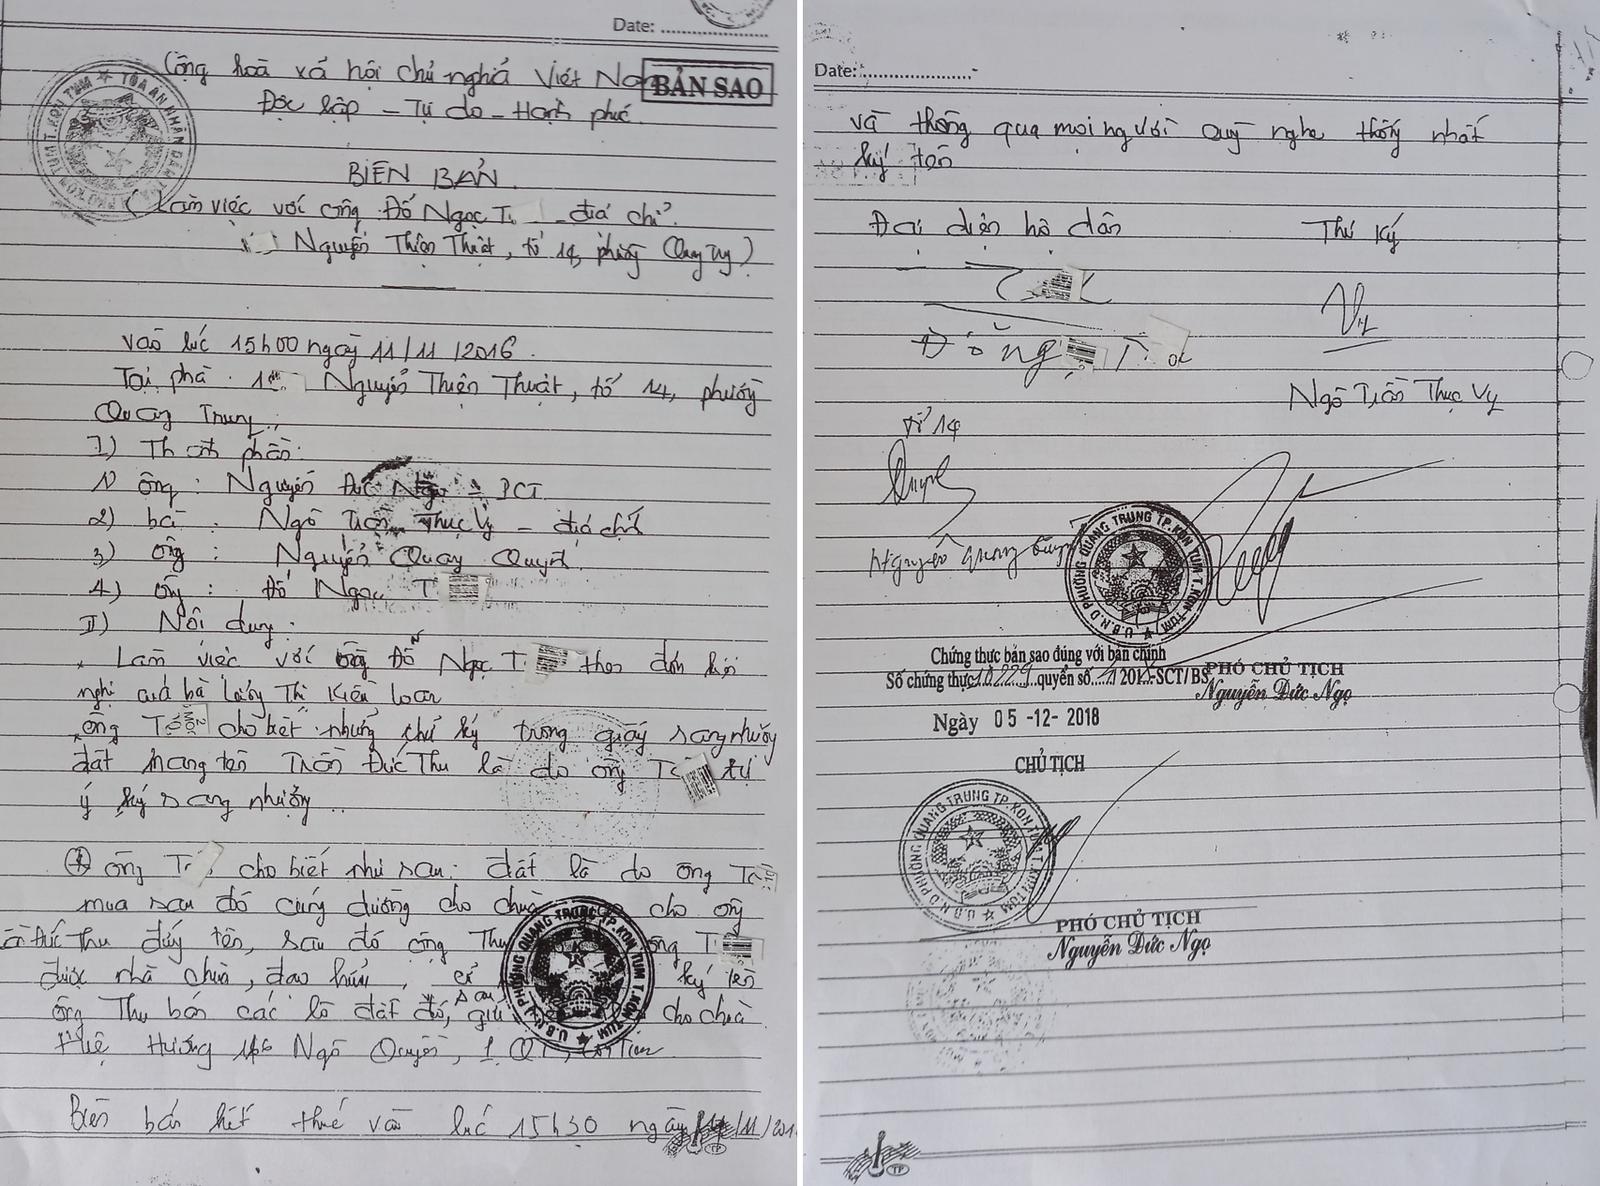 Date: ....................
Cộng hoà xã hội chủ nghĩa Việt Nam
BẢN SAO
Độc lập - Tự do - Hạnh phúc.
TÒA ÁN NHÂN DÂN
BIÊN BẢN.
(Làm việc với ông Đỗ Ngọc T - địa chỉ:
Nguyễn Thiện Thuật, tổ 14, phường Quang Trung)
vào lúc 15h00 ngày 11/11/2016.
Tại nhà 1 Nguyễn Thiện Thuật, tổ 14, phường
Quang Trung.
I) Thành phần:
1) ông: Nguyễn Đức Ngọ - PCT
2) bà: Ngô Trần Thục Vy - địa chính
3) ông: Nguyễn Quang Quynh
4) ông: Đỗ Ngọc T
II) Nội dung:
Làm việc với ông Đỗ Ngọc T theo đơn kiến
nghị của bà Thị Kiều Loan
ông T cho biết những chữ ký trong giấy sang nhượng
đất mang tên Trần Đức Thu là do ông T tự
ý ký sang nhượng..
ông T cho biết như sau: đất là do ông T
mua sau đó cúng dường cho chùa cho ông
Đức Thu đứng tên, sau đó ông Thu ông T
được nhà chùa, đạo hữu, ký tên
ông Thu bán các lô đất đó, sau, cho chùa
Huệ Hương Ngô Quyền,
Biên bản kết thúc vào lúc 15h30 ngày 11/11/201
U.B.N.D PHƯỜNG QUANG TRUNG TP.KON TUM T.KON TUM
Date: ....................
và thông qua mọi người cùng nghe thống nhất
ký tên
Đại diện hộ dân Thư ký
Vy
Đỗ Ng T
Ngô Trần Thục Vy
Tổ 14
Quynh
Nguyễn Quang
U.B.N.D PHƯỜNG QUANG TRUNG TP.KON TUM T.KON TUM
Chứng thực bản sao đúng với bản chính
Số chứng thực 10229 quyển số SCT/BS
PHÓ CHỦ TỊCH
Nguyễn Đức Ngọ
Ngày 05 -12- 2018
CHỦ TỊCH
U.B.N.D PHƯỜNG QUANG TRUNG TP.KON TUM T.KON TUM
PHÓ CHỦ TỊCH
Nguyễn Đức Ngọ
TP